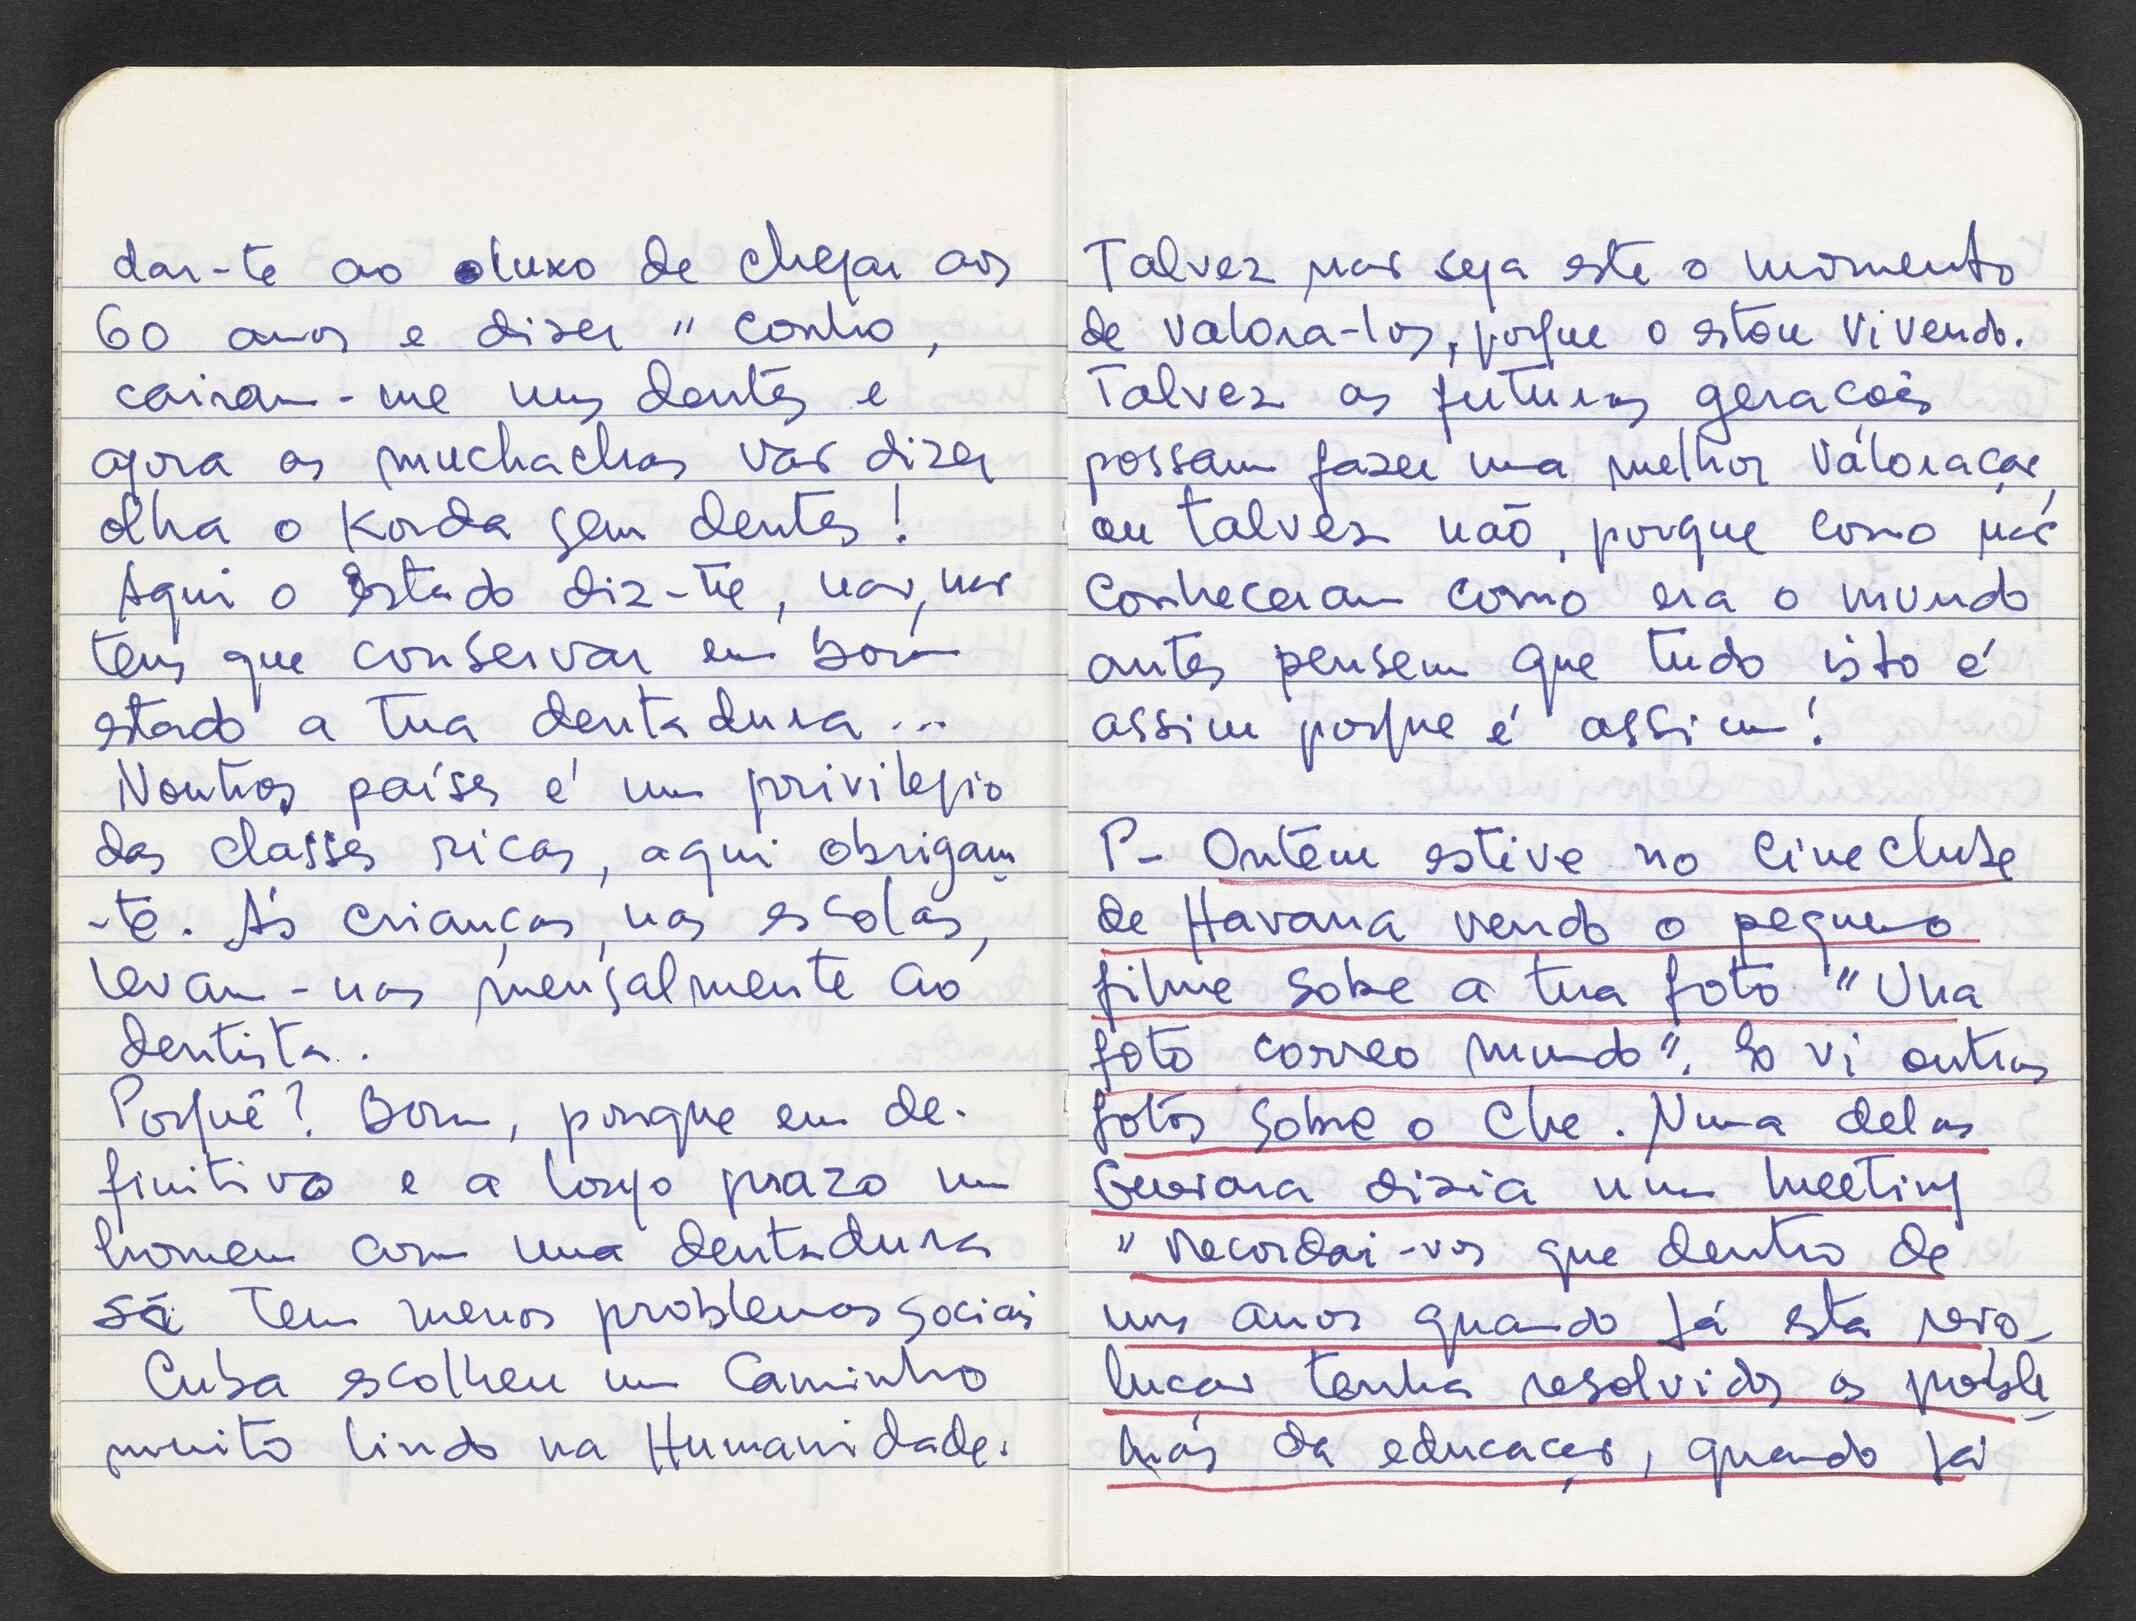 dar-te ao luxo de chegar aos
60 anos e dizer " conho,
cairam-me uns dentes e
agora os muchachos vão dizer
olha o Korda sem dentes!
Aqui o Estado diz-te, não, não
tens que conservar em bom
estado a tua dentadura...
Noutros países é um privilegio
das classes ricas, aqui obrigam
-te. Ás crianças, nas escolas,
levam-nas mensalmente ao
dentista.
Porquê? Bom, porque em de-
finitivo e a longo prazo um
homem com uma dentadura
sã tem menos problemas sociais
Cuba escolheu um Caminho
muito lindo na Humanidade.
Talvez não seja este o momento
de valora-los, porque o estou vivendo.
Talvez as futuras geracoẽs
possam fazer uma melhor valoração,
ou talvez não, porque como não
conheceram como era o mundo
antes pensem que tudo isto é
assim porque é assim!
P- Ontem estive no Cineclube
de Havana vendo o pequeno
filme sobre a tua foto "Una
foto correo mundo". So vi outras
fotos sobre o Che. Numa delas
Guevara dizia num meeting
" recordai-vos que dentro de
uns anos quando já esta revo-
lucão tenha resolvidos os proble-
mas da educação, quando já